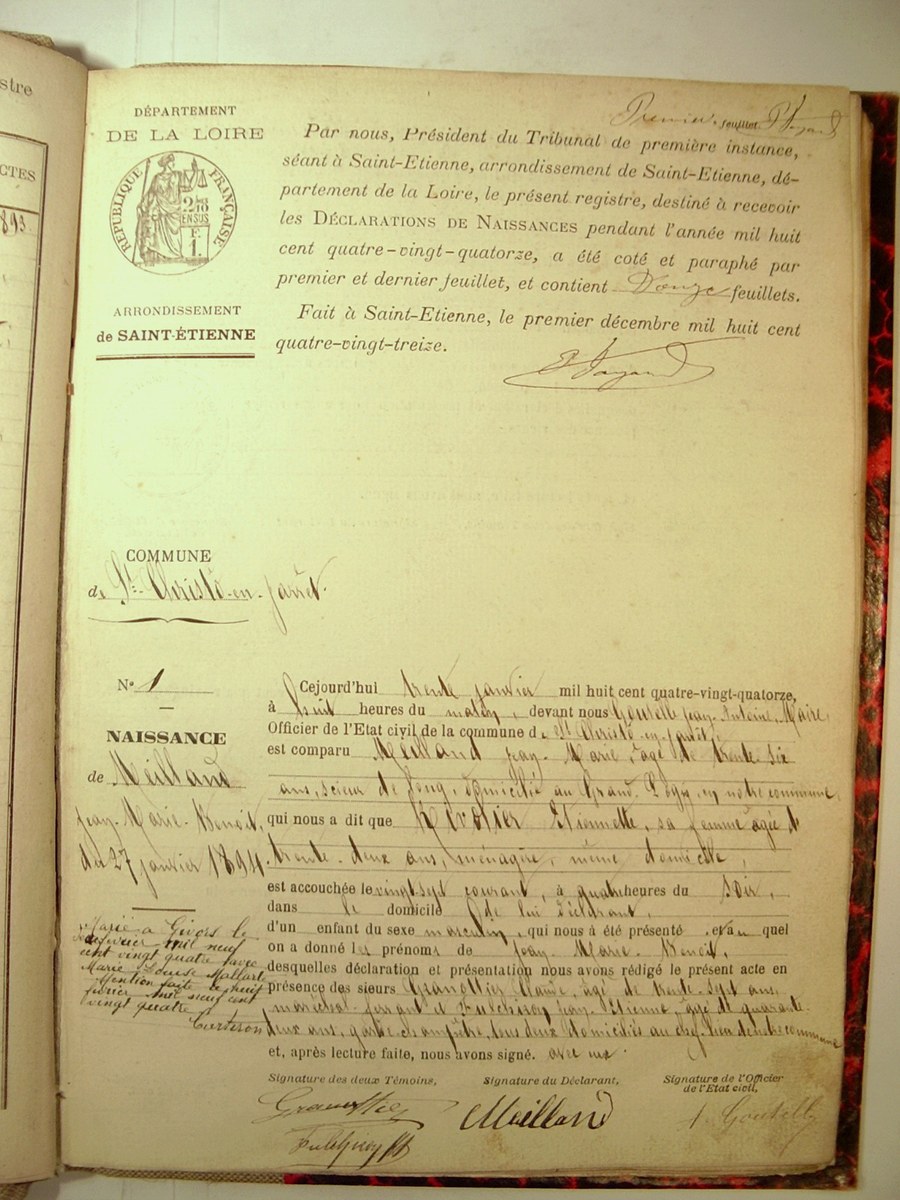 stre
CTES
893
Premier feuillet.
DÉPARTEMENT
DE LA LOIRE
RÉPUBLIQUE FRANÇAISE
ARRONDISSEMENT
de SAINT-ÉTIENNE
Par nous, Président du Tribunal de première instance,
séant à Saint-Etienne, arrondissement de Saint-Etienne, dé-
partement de la Loire, le présent registre, destiné à recevoir
les DÉCLARATIONS DE NAISSANCES pendant l'année mil huit
cent quatre-vingt-quatorze, a été coté et paraphé par
premier et dernier feuillet, et contient Douze feuillets.
Fait à Saint-Etienne, le premier décembre mil huit cent
quatre-vingt-treize.
COMMUNE
de St. Christô-en-Jarrêt.
No 1
NAISSANCE
de Meilland
Jean-Marie-Benoît,
du 27 janvier 1894.
Marié à Givors le
février mil neuf
cent vingt quatre avec
Marie Louise Mallart
Mention faite le huit
février mil neuf cent
vingt quatre
Cejourd'hui trente janvier mil huit cent quatre-vingt-quatorze,
à huit heures du matin, devant nous Goutelle Jean-Antoine, Maire,
Officier de l'Etat civil de la commune de St Christô-en-Jarrêt,
est comparu Meilland Jean-Marie, âgé de trente-six
ans, scieur de long, domicilié au Grand in notre commune,
qui nous a dit que Etiennette, sa femme âgée de
trente-deux ans, ménagère, même domicile,
est accouchée le vingt sept courant, à quatre heures du soir,
dans le domicile de lui déclarant,
d'un enfant du sexe masculin, qui nous a été présenté et auquel
on a donné les prénoms de Jean-Marie-Benoît,
desquelles déclaration et présentation nous avons rédigé le présent acte en
présence des sieurs Granottier Claude, âgé de trente-sept ans,
maréchal-ferrant et Fulchiron Jean-Etienne, âgé de quarante
deux ans, garde champêtre, tous deux domiciliés au chef-lieu de notre commune
et, après lecture faite, nous avons signé. avec eux.
Signature des deux Témoins,
Signature du Déclarant,
Signature de l'Officier
de l'Etat civil,
Granottier
Meilland
Goutelle